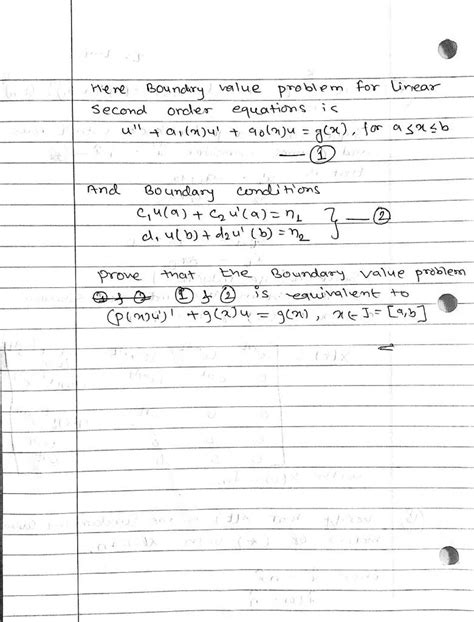 Here Boundry value problem for linear
second order equations is
u'' + a₁(x)u' + a₀(x)u = g(x), for a ≤ x ≤ b
— ①
And Boundary conditions
c₁u(a) + c₂u'(a) = η₁
d₁u(b) + d₂u'(b) = η₂ } — ②
prove that the Boundary value problem
① & ② is equivalent to
(p(x)u')' + g(x)u = g(x), x ∈ J = [a,b]